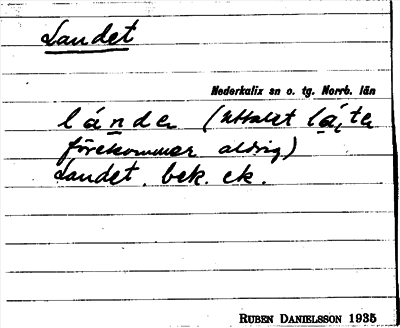 Landet
Nederkalix sn o. tg. Norrb. län
lánde (uttalet lá,te
förekommer aldrig)
Landet. bek. ek.
RUBEN DANIELSSON 1935